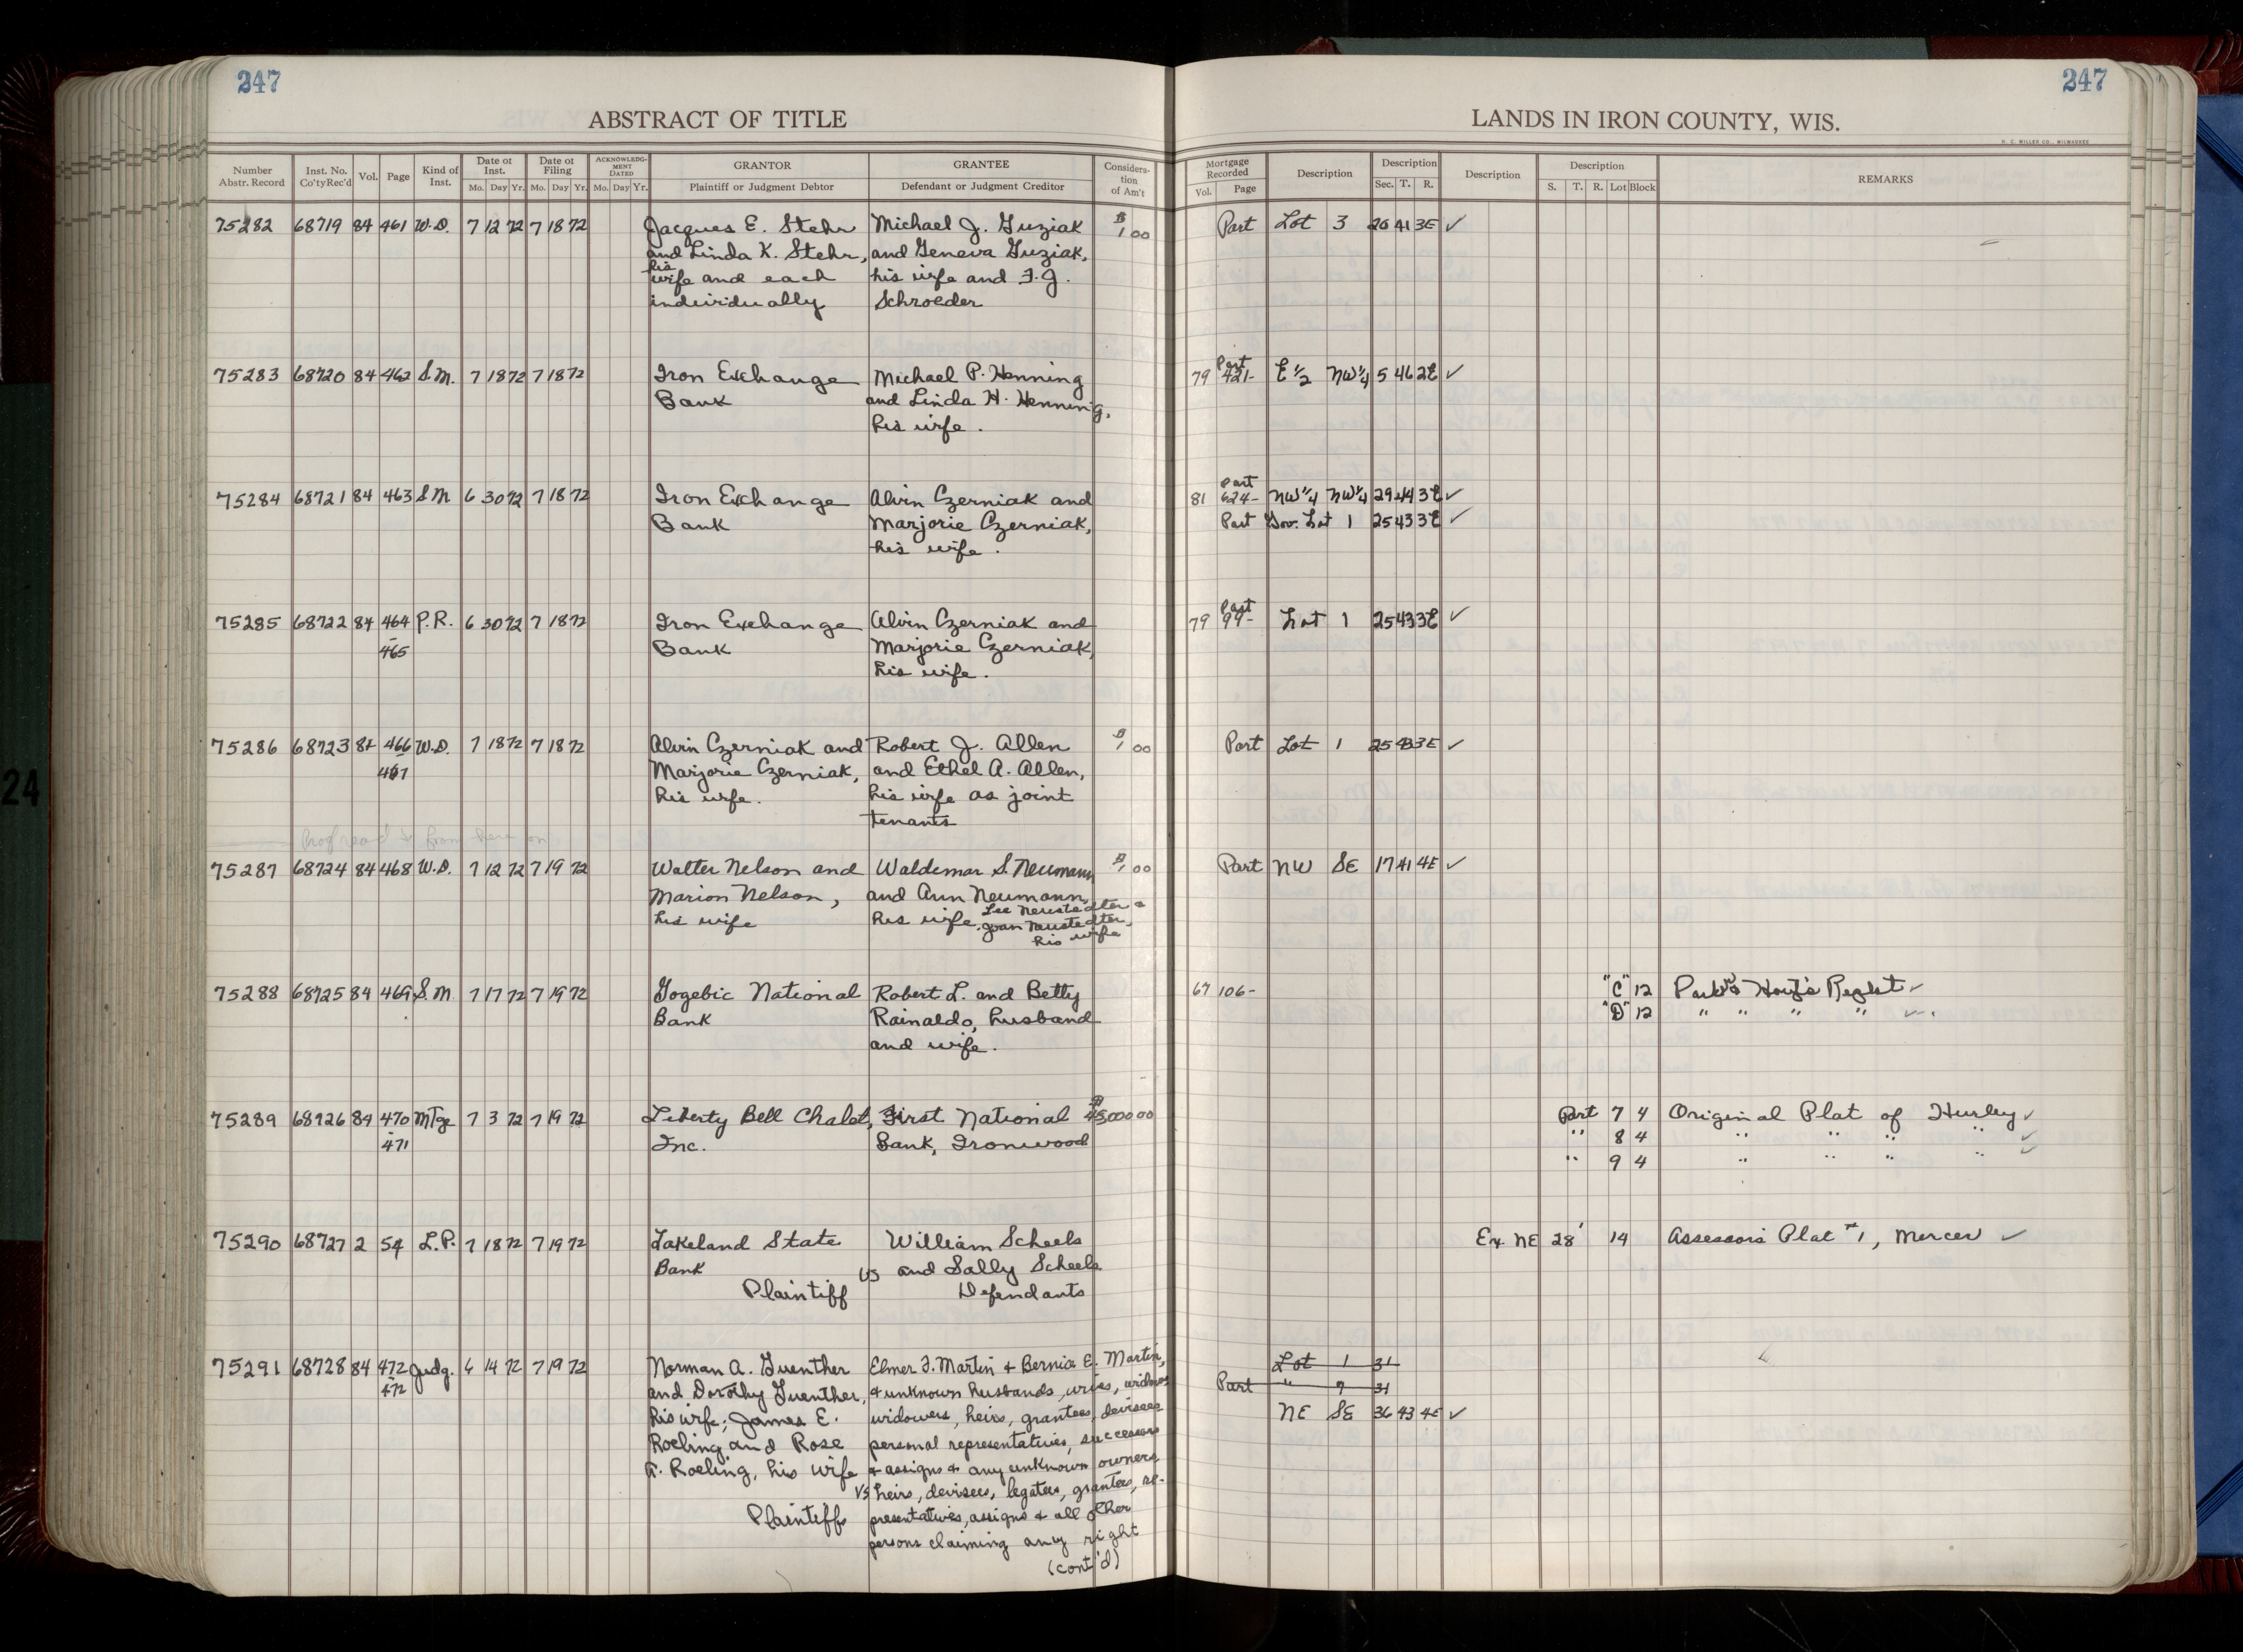 247
ABSTRACT OF TITLE
Number Abstr. Record Inst. No. Co'tyRec'd Vol. Page Kind of Inst. Date of Inst. Mo. Day Yr. Date of Filing Mo. Day Yr. ACKNOWLEDGMENT DATED Mo. Day Yr. GRANTOR Plaintiff or Judgment Debtor GRANTEE Defendant or Judgment Creditor Consideration of Am't
247
LANDS IN IRON COUNTY, WIS.
H. C. MILLER CO., MILWAUKEE
Mortgage Recorded Vol. Page Description Description Sec. T. R. Description Description S. T. R. Lot Block REMARKS
75282 68719 84 461 W.D. 7 12 72 7 18 72 Jacques E. Stehr Michael J. Guziak $1 00 Part Lot 3 26 41 3E ✓
and Linda K. Stehr, and Geneva Guziak,
his
wife and each his wife and F.J.
individually Schroeder
75283 68720 84 462 S.M. 7 18 72 7 18 72 Iron Exchange Michael P. Henning 79 421- Part E 1/2 NW 1/4 5 46 2E ✓
Bank and Linda H. Henning,
his wife.
75284 68721 84 463 S.M 6 30 72 7 18 72 Iron Exchange Alvin Czerniak and 81 624- Part NW 1/4 NW 1/4 29 44 3E ✓
Bank Marjorie Czerniak, Part Gov. Lot 1 25 43 3E ✓
his wife.
75285 68722 84 464 P.R. 6 30 72 7 18 72 Iron Exchange Alvin Czerniak and 79 99- Part Lot 1 25 43 3E ✓
- 465 Bank Marjorie Czerniak,
his wife.
75286 68723 84 466 W.D. 7 18 72 7 18 72 Alvin Czerniak and Robert J. Allen $1 00 Part Lot 1 25 43 3E ✓
- 467 Marjorie Czerniak, and Ethel A. Allen,
his wife. his wife as joint
tenants
from here on
75287 68724 84 468 W.D. 7 12 72 7 19 72 Walter Nelson and Waldemar S. Neumann $1 00 Part NW SE 17 41 4E ✓
Marion Nelson, and Ann Neumann,
his wife his wife, Lee Neustedter &
Joan Neustedter,
his wife
75288 68725 84 469 S.M 7 17 72 7 19 72 Gogebic National Robert L. and Betty 67 106- "C" 12 ✓
Bank Rainaldo, husband "D" 12 " " " " ✓
and wife.
75289 68726 84 470 Mtge 7 3 72 7 19 72 Liberty Bell Chalet, First National $45,000 00 Part 7 4 Original Plat of Hurley ✓
- 471 Inc. Bank, Ironwood " 8 4 " " " " ✓
" 9 4 " " " " ✓
75290 68727 2 54 L.P. 7 18 72 7 19 72 Lakeland State William Scheels Ex. NE 28' 14 Assessors Plat #1, Mercer ✓
Bank vs and Sally Scheels
Plaintiff Defendants
75291 68728 84 472 Judg. 6 14 72 7 19 72 Norman A. Guenther Elmer F. Martin & Bernice E. Martin, Lot 1 31
- 472 and Dorothy Guenther, & unknown husbands, wives, widows Part " 7 31
his wife; James E. widowers, heirs, grantees, devisees NE SE 36 43 4E ✓
Roeling and Rose personal representatives, successors
A. Roeling, his wife & assigns & any unknown owners
vs heirs, devisees, legatees, grantees, re-
Plaintiffs presentatives, assigns & all other
persons claiming any right
(cont'd)
24